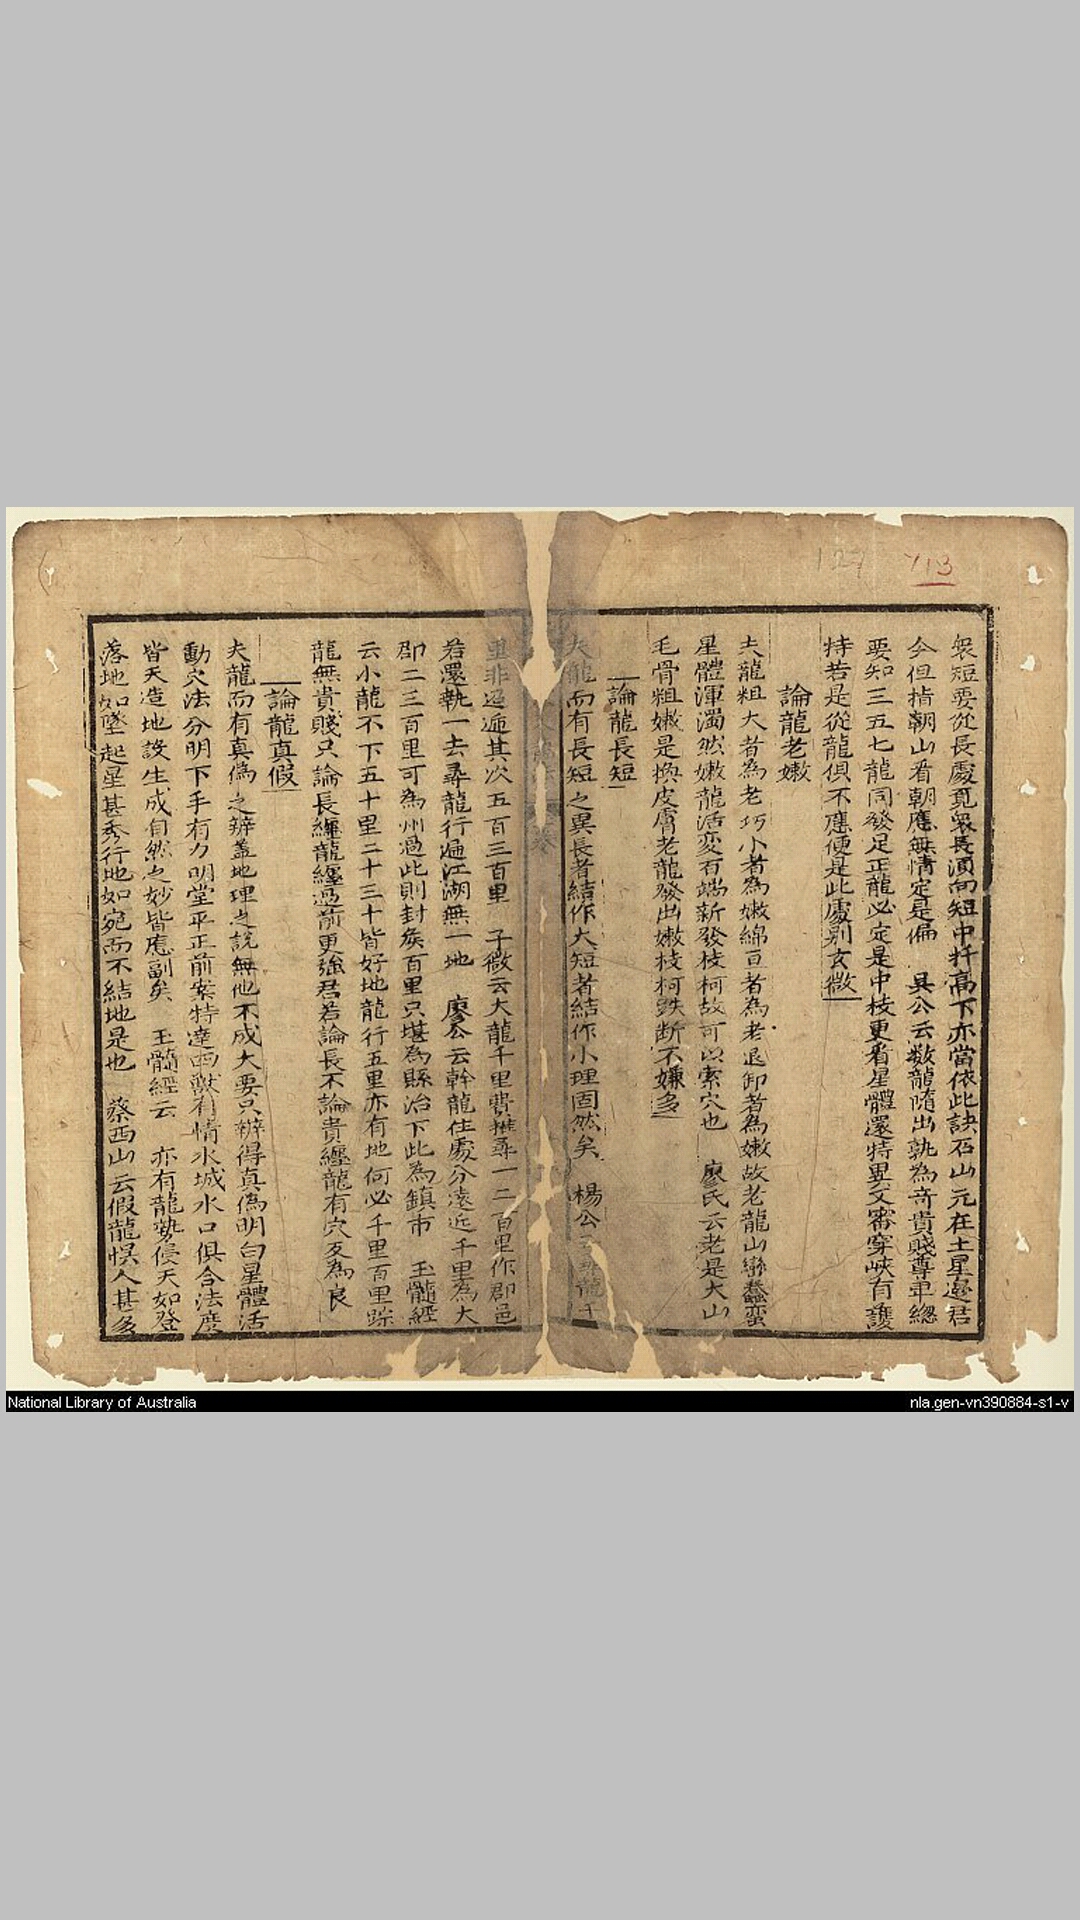 衆短要從長處覓衆長須向短中扦高下亦當依此訣石山元在土星邊君
今但指朝山看朝應無情定是偏 具公云数龍随出孰為奇貴賤尊卑總
要知三五七龍同發足正龍必定是中枝更看星體還特異又審穿峽有護
特若是從龍俱不應便是此處别玄微
論龍老嫩
夫龍粗大者為老巧小者為嫩綿亘者為老退卸者為嫩故老龍山巒蠢蛮
星體渾濁然嫩龍活变百端新發枝柯故可以索穴也 廖氏云老是大山
毛骨粗嫩是換皮膚老龍發出嫩枝柯跌断不嫌多
論龍長短
夫龍而有長短之異長者結作大短者結作小理固然矣 楊公 龍千
里非迢逓其次五百三百里 子微云大龍千里費推尋一二百里作郡邑
若還執一去尋龍行遍江湖無一地 廖公云幹龍住處分遠近千里為大
郡二三百里可為州過此則封矦百里只堪為縣治下此為鎮市 玉髓經
云小龍不下五十里二十三十皆好地龍行五里亦有地何必千里百里踪
龍無貴賤只論長纏龍纏過前更強君若論長不論貴纏龍有穴反為良
論龍真假
夫龍而有真偽之辨盖地理之説無他不成大要只辨得真偽明白星體活
動穴法分明下手有力明堂平正前案特達四獣有情水城水口俱合法度
皆天造地設生成自然之妙皆應副矣 玉髓經云 亦有龍勢侵天如登
落地如墜起星甚秀行地如宛而不結地是也 蔡西山云假龍悮人甚多
127
713
National Library of Australia
nla.gen-vn390884-s1-v